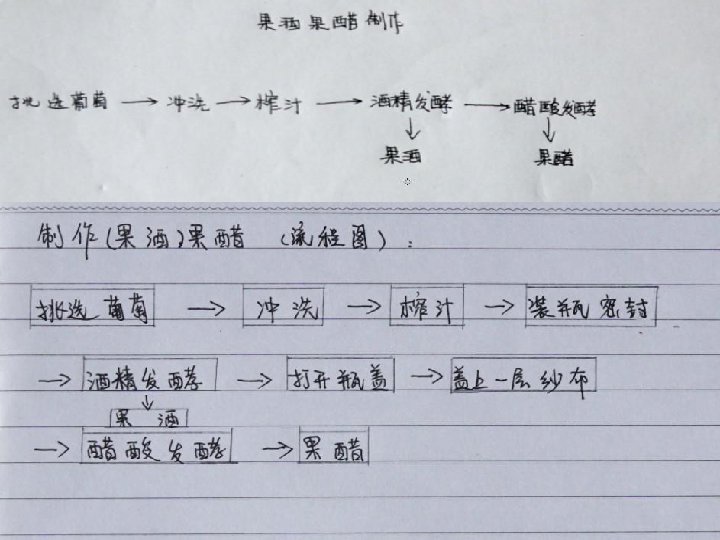 果酒果醋制作
挑选葡萄 → 冲洗 → 榨汁 → 酒精发酵 → 醋酸发酵
↓ ↓
果酒 果醋
制作(果酒)果醋 (流程图):
挑选葡萄 → 冲洗 → 榨汁 → 装瓶密封
→ 酒精发酵 → 打开瓶盖 → 盖上一层纱布
↓
果酒
→ 醋酸发酵 → 果醋